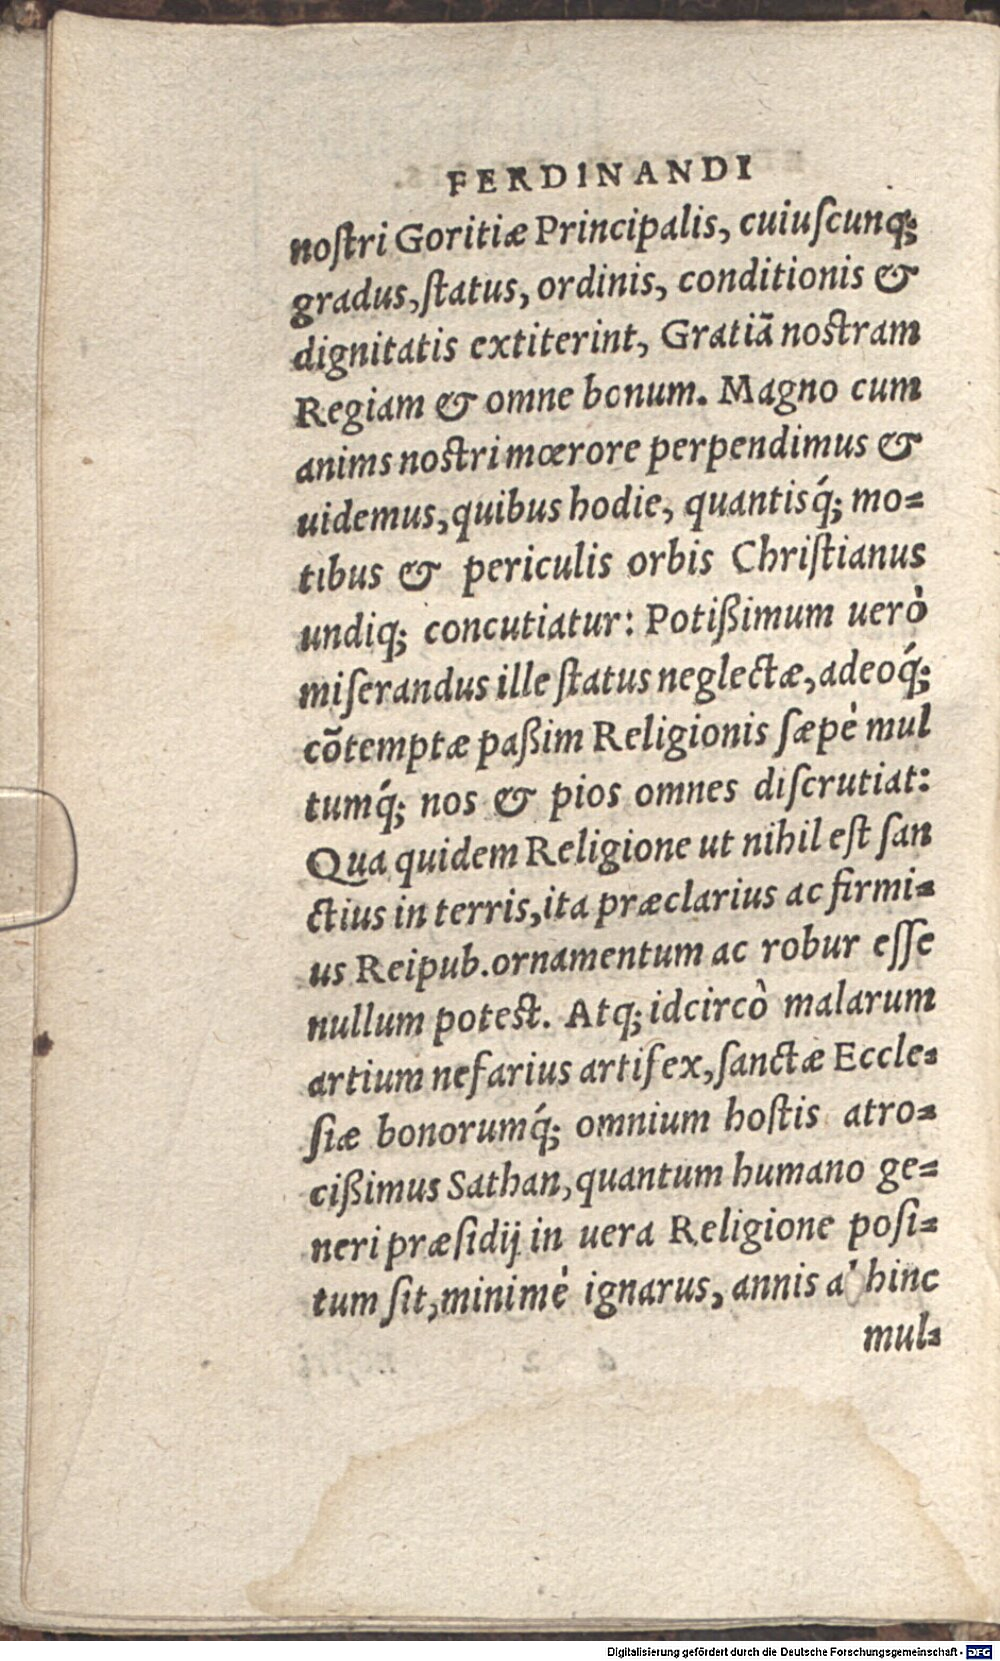 FERDINANDI
noſtri Goritiæ Principalis, cuiuſcunq;
gradus, ſtatus, ordinis, conditionis &
dignitatis extiterint, Gratiã noſtram
Regiam & omne bonum. Magno cum
anims noſtri mœrore perpendimus &
uidemus, quibus hodie, quantisq́; mo=
tibus & periculis orbis Chriſtianus
undiq; concutiatur: Potißimum uerò
miſerandus ille ſtatus neglectæ, adeoq́;
cõtemptæ paßim Religionis ſæpè mul
tumq́; nos & pios omnes diſcrutiat:
Qua quidem Religione ut nihil eſt ſan
ctius in terris, ita præclarius ac firmi=
us Reipub. ornamentum ac robur eſſe
nullum poteſt. Atq; idcircò malarum
artium nefarius artifex, ſanctæ Eccle=
ſiæ bonorumq́; omnium hoſtis atro=
cißimus Sathan, quantum humano ge=
neri præſidij in uera Religione poſi=
tum ſit, minimè ignarus, annis a' hinc
mul=
Digitalisierung gefördert durch die Deutsche Forschungsgemeinschaft - DFG